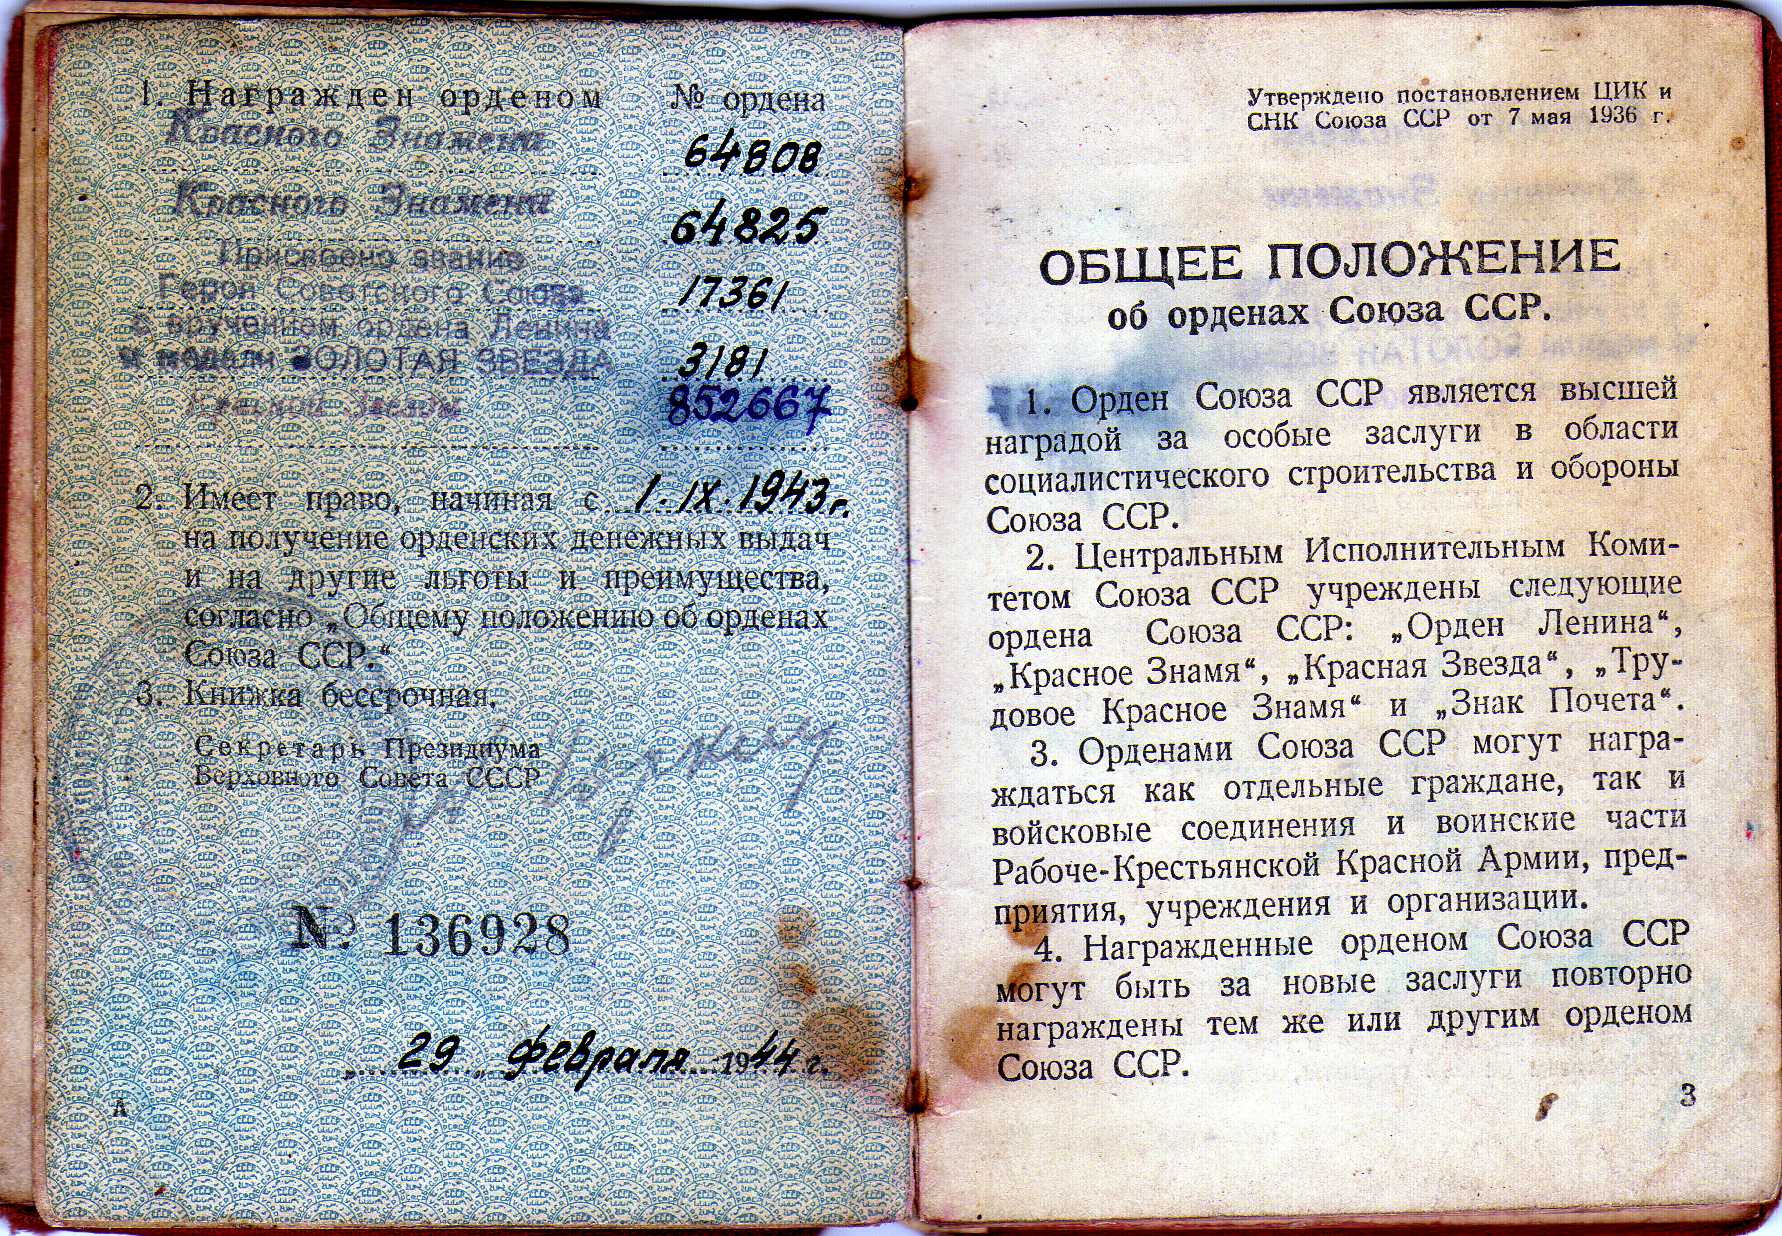 1. Награжден орденом № ордена
Красного Знамени 64808
Красного Знамени 64825
Присвоено звание
Героя Советского Союза 17361
с вручением ордена Ленина
и медали ЗОЛОТАЯ ЗВЕЗДА 3181
Красной Звезды 852667
2. Имеет право, начиная с 1.IX.1943г.
на получение орденских денежных выдач
и на другие льготы и преимущества,
согласно „Общему положению об орденах
Союза ССР.“
3. Книжка бессрочная.
Секретарь Президиума
Верховного Совета СССР
№ 136928
„29„ февраля 1944 г.
А
Утверждено постановлением ЦИК и
СНК Союза ССР от 7 мая 1936 г.
ОБЩЕЕ ПОЛОЖЕНИЕ
об орденах Союза ССР.
1. Орден Союза ССР является высшей
наградой за особые заслуги в области
социалистического строительства и обороны
Союза ССР.
2. Центральным Исполнительным Коми-
тетом Союза ССР учреждены следующие
ордена Союза ССР: „Орден Ленина“,
„Красное Знамя“, „Красная Звезда“, „Тру-
довое Красное Знамя“ и „Знак Почета“.
3. Орденами Союза ССР могут награ-
ждаться как отдельные граждане, так и
войсковые соединения и воинские части
Рабоче-Крестьянской Красной Армии, пред-
приятия, учреждения и организации.
4. Награжденные орденом Союза ССР
могут быть за новые заслуги повторно
награждены тем же или другим орденом
Союза ССР.
3